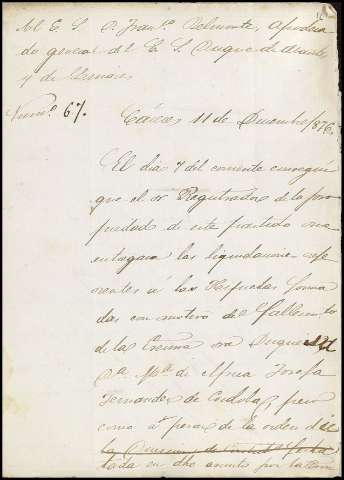 Al E. S. D. Franco. Belmonte, Apodera
do general del E. S. Duque de
y de
Numo. 67.
Cáceres 11 de Diciembre/876.
El dia 7 del corriente conseguí
que el Sr Registrador de la pro
piedad de este partido me
entregara las liquidaciones refe
rentes á las Hijuelas forma
das con motivo del fallecimto
de la Excma Sra Duquesa
Da. Ma. de Josefa
Fernandez de Córdoba, pero
como á pesar de la orden
la
tada en dho asunto por la